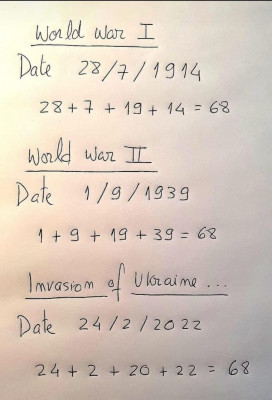 World War I
Date 28/7/1914
28+7+19+14=68
World War II
Date 1/9/1939
1+9+19+39=68
Invasion of Ukraine...
Date 24/2/2022
24+2+20+22=68